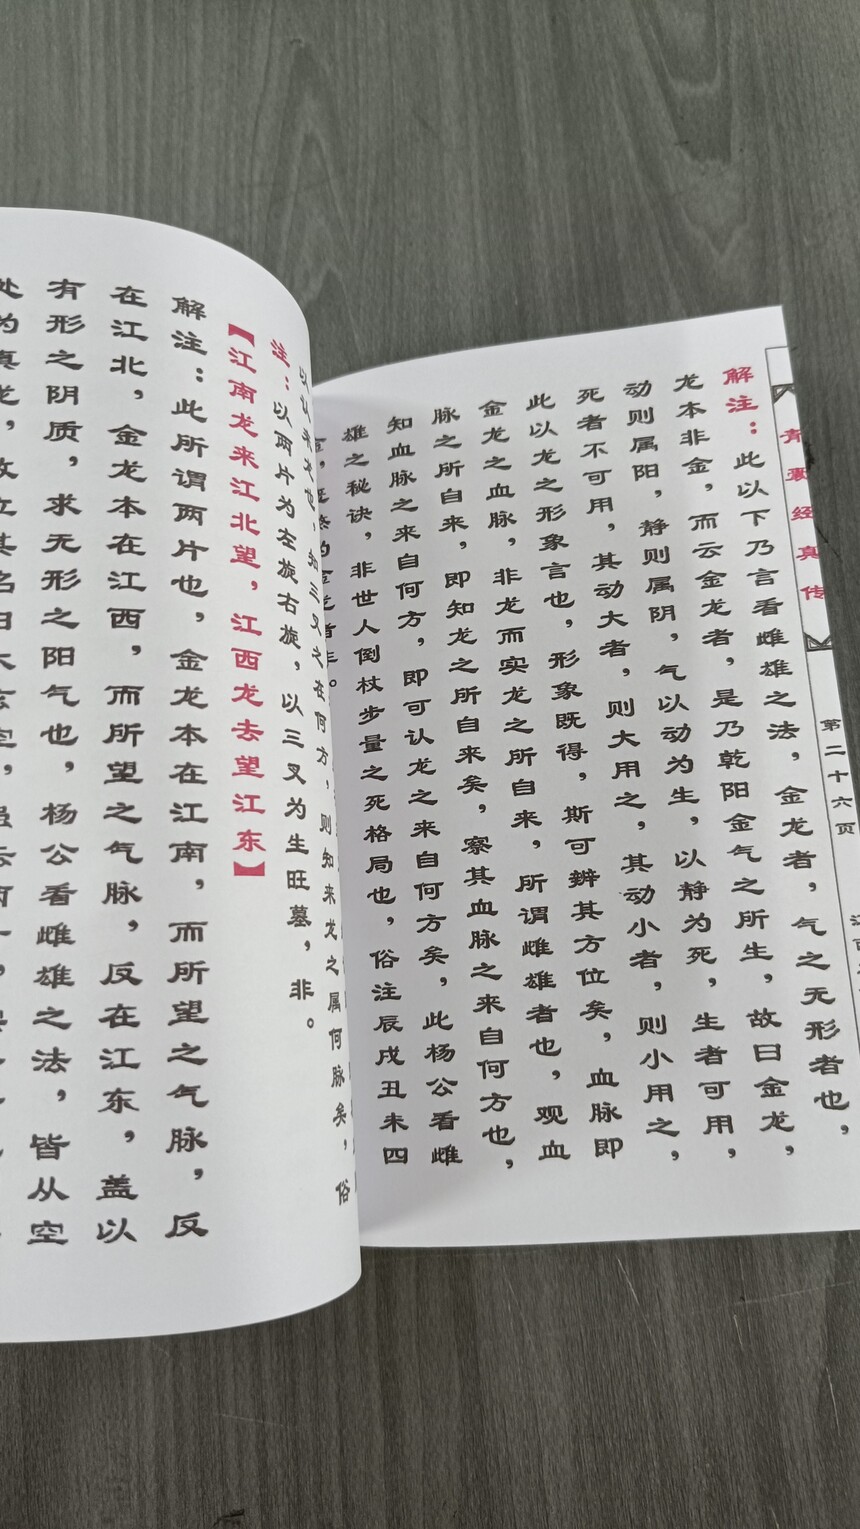 青囊经真传
第二十六页
解注：此以下乃言看雌雄之法，金龙者，气之无形者也，
龙本非金，而云金龙者，是乃乾阳金气之所生，故曰金龙，
动则属阳，静则属阴，气以动为生，以静为死，生者可用，
死者不可用，其动大者，则大用之，其动小者，则小用之，
此以龙之形象言也，形象既得，斯可辨其方位矣，血脉即
金龙之血脉，非龙而实龙之所自来，所谓雌雄者也，观血
脉之所自来，即知龙之所自来矣，察其血脉之来自何方也，
知血脉之来自何方，即可认龙之来自何方矣，此杨公看雌
雄之秘诀，非世人倒杖步量之死格局也，俗注辰戌丑未四
为金龙者非。
以认来龙也，知三叉之在何方，则知来龙之属何脉矣，俗
注：以两片为左旋右旋，以三叉为生旺墓，非。
【江南龙来江北望，江西龙去望江东】
解注：此所谓两片也，金龙本在江南，而所望之气脉，反
在江北，金龙本在江西，而所望之气脉，反在江东，盖以
有形之阴质，求无形之阳气也，杨公看雌雄之法，皆从空
处为真龙，故立其名曰大玄空，虽云两